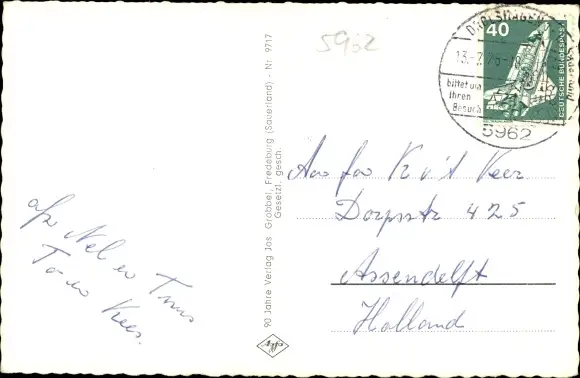 5962
DROLSHAGEN
40
13.-7.76-18
bittet um
Ihren
Besuch
DEUTSCHE BUNDESPOST
5962
90 Jahre Verlag Jos Grobbel, Fredeburg (Sauerland) - Nr 9717
Gesetzl. gesch.
Aan fam K v't Veer
Dorpsstr 425
Assendelft
Holland
afz Nel en Trus
To en Kees.